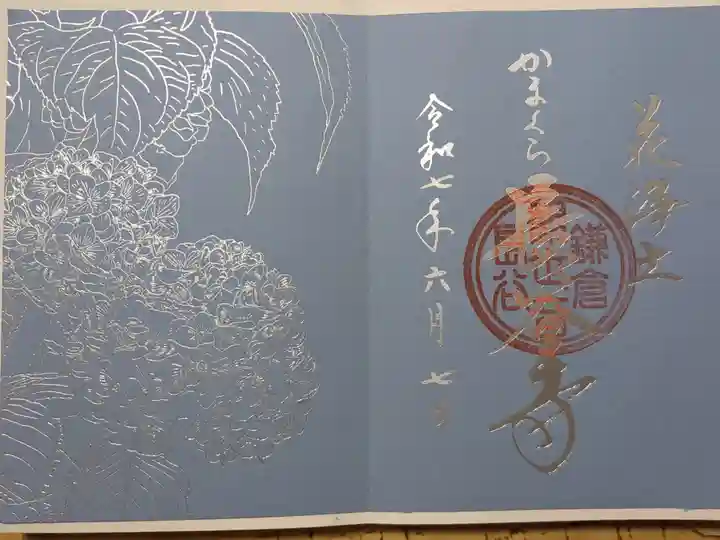 花浄土
かまくら 長谷寺
鎌倉
長谷
令和七年六月七日